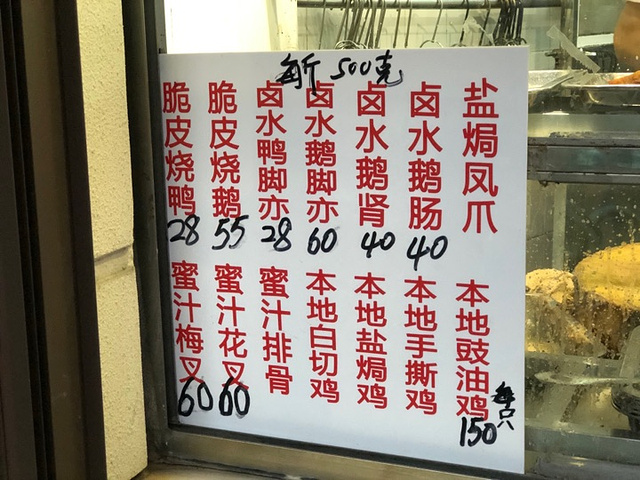 每斤 500克
盐焗凤爪
卤水鹅肠
40
卤水鹅肾
40
卤水鹅脚亦
60
卤水鸭脚亦
28
脆皮烧鹅
55
脆皮烧鸭
28
本地豉油鸡
每只
150
本地手撕鸡
本地盐焗鸡
本地白切鸡
蜜汁排骨
蜜汁花叉
60
蜜汁梅叉
60